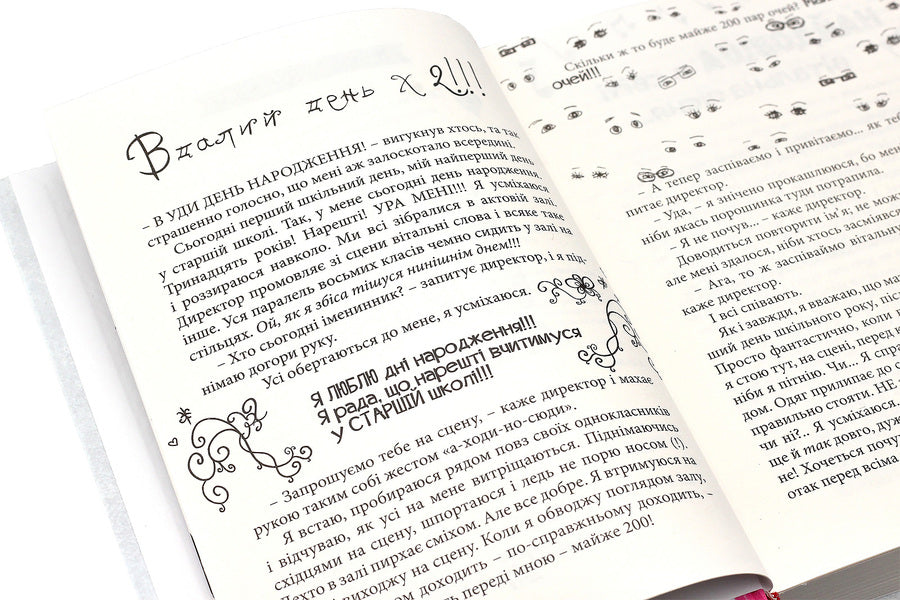 Вдалий день х 2!!!
– В УДИ ДЕНЬ НАРОДЖЕННЯ! – вигукнув хтось, та так
страшенно голосно, що мені аж залоскотало всередині.
Сьогодні перший шкільний день, мій найперший день
у старшій школі. Так, у мене сьогодні день народження.
Тринадцять років! Нарешті! УРА МЕНІ!!! Я усміхаюся
і роззираюся навколо. Ми всі зібралися в актовій залі.
Директор промовляє зі сцени вітальні слова і всяке таке
інше. Уся паралель восьмих класів чемно сидить у залі на
стільцях. Ой, як я збіса тішуся нинішнім днем!!!
– Хто сьогодні іменинник? – запитує директор, і я під-
німаю догори руку.
Усі обертаються до мене, я усміхаюся.
Я ЛЮБЛЮ дні народження!!!
Я рада, що нарешті вчитимуся
у СТАРШІЙ школі!!!
– Запрошуємо тебе на сцену, – каже директор і махає
рукою таким собі жестом «а-ходи-но-сюди».
Я встаю, пробираюся рядом повз своїх однокласників
і відчуваю, як усі на мене витріщаються. Піднімаючись
східцями на сцену, шпортаюся і ледь не порю носом (!).
Дехто в залі пирхає сміхом. Але все добре. Я втримуюся на
і виходжу на сцену. Коли я обводжу поглядом залу,
доходить – по-справжньому доходить, –
переді мною – майже 200!
Скільки ж то буде майже 200 пар очей?
очей!!!
– А тепер заспіваємо і привітаємо... як
питає директор.
– Уда, – я знічено прокашлююся, бо
ніби якась порошинка туди потрапила.
– Я не почув... – каже директор.
Доводиться повторити ім’я; не
але мені здалося, ніби хтось засміявся
– Ага, то ж заспіваймо
каже директор.
І всі співають.
Як і завжди, я вважаю, що
ший день шкільного року,
Просто фантастично, коли
я стою тут, на сцені, перед
ніби я пітнію. Чи... Я
дом. Одяг прилипає до
правильно стояти. НЕ
чи ні?.. Я усміхаюся.
ще й так довго,
не! Хочеться
отак перед всіма